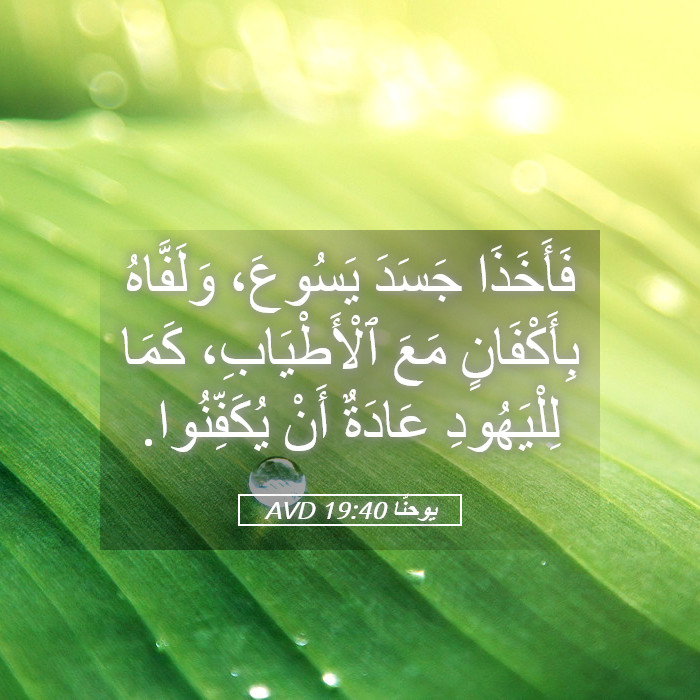 فَأَخَذَا جَسَدَ يَسُوعَ، وَلَفَّاهُ
بِأَكْفَانٍ مَعَ ٱلْأَطْيَابِ، كَمَا
لِلْيَهُودِ عَادَةٌ أَنْ يُكَفِّنُوا.
يوحنَّا 19:40 AVD